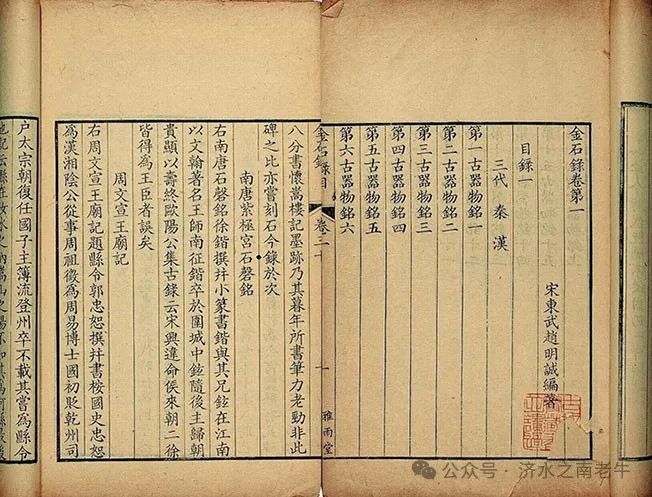 金石錄卷第一
宋東武趙明誠編著
目錄一
三代 秦 漢
第一古器物銘一
第二古器物銘二
第三古器物銘三
第四古器物銘四
第五古器物銘五
第六古器物銘六
金石錄目
一
雅雨堂
卷三十
八分書懷嵩樓記墨跡乃其暮年所書筆力老勁非此
碑之比亦嘗刻石今錄於次
南唐紫極宮石磬銘
右南唐石磬銘徐鍇撰幷小篆書鍇與其兄鉉在江南
以文翰著名王師南征鍇卒於圍城中鉉隨後主歸朝
貴顯以壽終歐陽公集古錄云宋興違命侯來朝二徐
皆得爲王臣者誤矣
周文宣王廟記
右周文宣王廟記題縣令郭忠恕撰幷書按國史忠恕
爲漢湘陰公從事周祖徵爲周易博士國初貶乾州司
戶太宗朝復任國子主簿流登州卒不載其嘗爲縣令
公众号·济水之南老牛